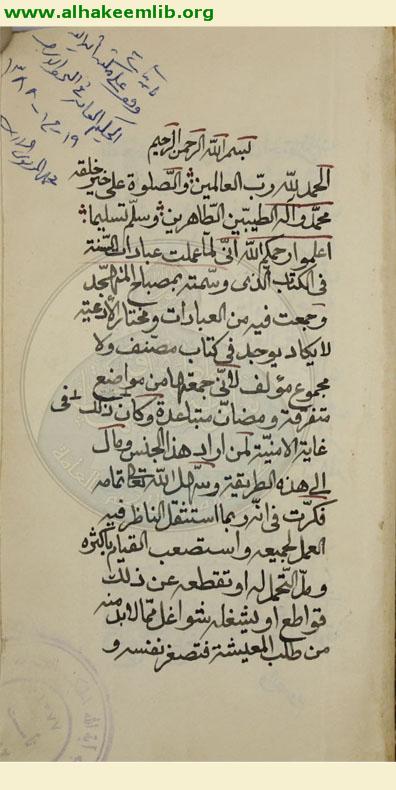 www.alhakeemlib.org
بسم الله الرحمن الرحيم
الحمد لله رب العالمين والصلوة على خير خلقه
محمد وآله الطيبين الطاهرين وسلم تسليما
اعلموا رحمكم الله انى لما عملت عبادات السنة
فى الكتاب الذى وسمته بمصباح المتهجد
وجمعت فيه من العبادات ومختار الأدعية
لا يكاد يوجد فى كتاب مصنف ولا
مجموع مؤلف لانى جمعتها من مواضع
متفرقة ومضان متباعدة وكان ذلك فى
غاية الامنية لمن اراد هذا الجنس ومال
الى هذه الطريقة وسهل الله تعالى تمامه
فكرت فى انه ربما استثقل الناظر فيه
العمل بجميعه واستصعب القيام بأكثره
ومل التحمل له او تقطعه عن ذلك
قواطع او يشغله شواغل مما لابد منه
من طلب المعيشة فتصغر نفسه و